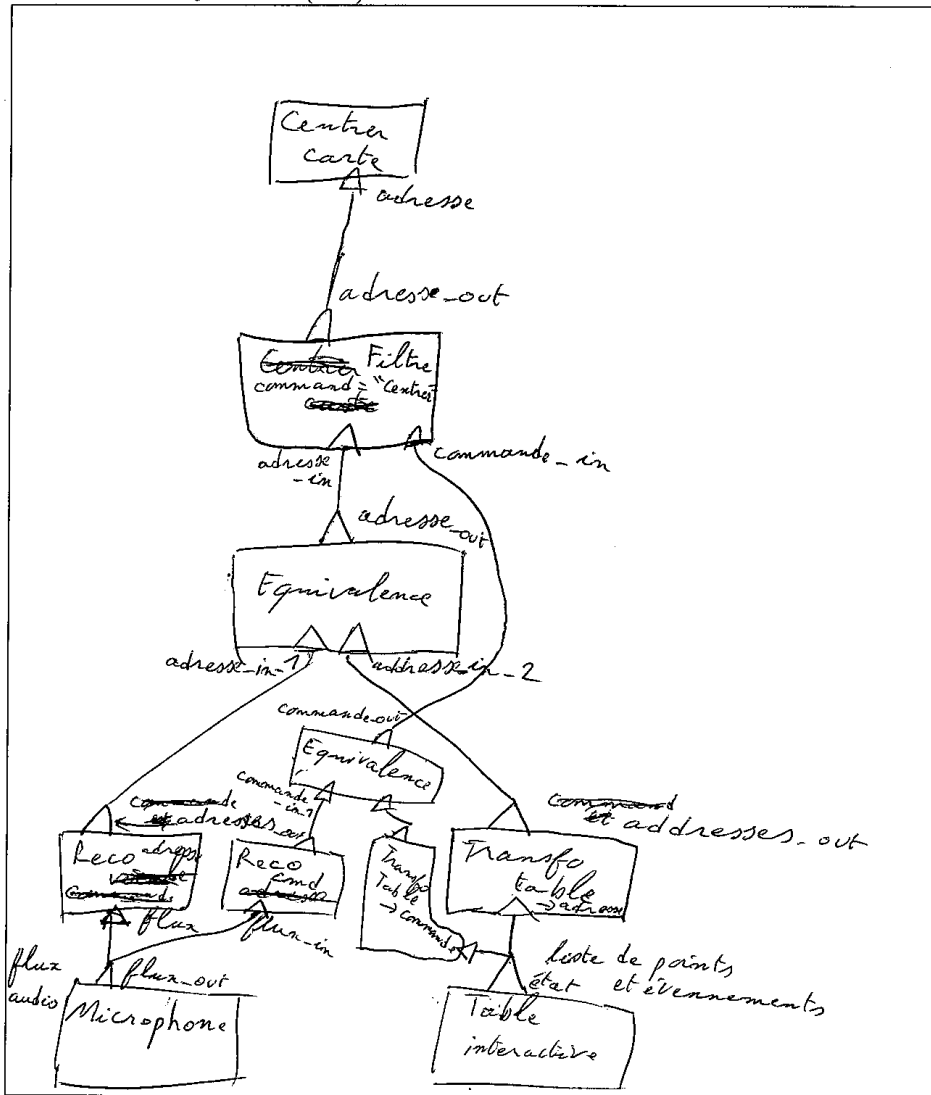 Centrer
carte
adresse
adresse_out
Filtre
command = "Centrer"
adresse
_in
commande_in
adresse_out
Equivalence
adresse_in_1
addresse_in_2
commande_out
Equivalence
commande
_in_1
adresses_out
addresses_out
Reco adresse
Reco
cmd
Transfo
Table
→ commande
Transfo
table
flux
flux_in
flux
audio
flux_out
liste de points
état et évennements
Microphone
Table
interactive